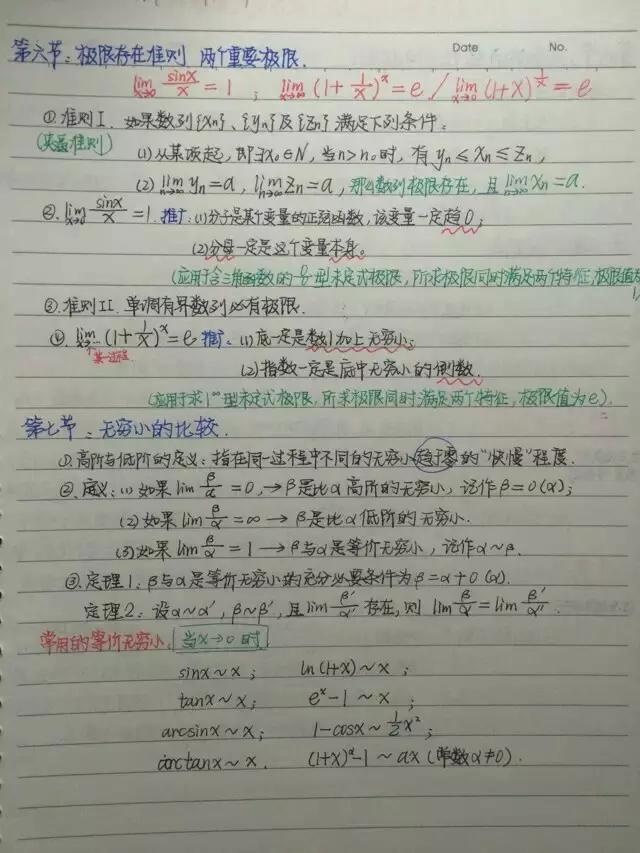 Date No.
第六节：极限存在准则 两个重要极限.
lim x→0 sinx/x = 1 ; lim x→∞ (1+1/x)^x = e / lim x→0 (1+x)^(1/x) = e
①准则I. 如果数列{Xn}、{Yn}及{Zn}满足下列条件：
(夹逼准则) (1)从某项起，即∃x₀∈N，当n>n₀时，有yn≤xn≤zn，
(2) lim n→∞ yn=a, lim n→∞ zn=a，那么数列极限存在，且lim n→∞ xn=a.
②. lim x→0 sinx/x = 1. 推广：(1)分子是某个变量的正弦函数，该变量一定趋0；
(2)分母一定是这个变量本身。
(应用于含三角函数的0/0型未定式极限，所求极限同时满足两个特征，极限值为
③.准则II. 单调有界数列必有极限.
④. lim x→… (1+1/x)^x = e. 推广. (1)底一定是数1加上无穷小；
某一过程
(2)指数一定是底中无穷小的倒数.
(应用于求1^∞型未定式极限，所求极限同时满足两个特征，极限值为e).
第七节：无穷小的比较.
①.高阶与低阶的定义：指在同一过程中不同的无穷小趋于零的“快慢”程度.
②.定义：(1)如果lim β/α = 0，→β是比α高阶的无穷小，记作β=0(α)；
(2)如果lim β/α = ∞ → β是比α低阶的无穷小.
(3)如果lim β/α = 1 → β与α是等价无穷小，记作α~β.
③.定理1：β与α是等价无穷小的充分必要条件为β=α+0(α).
定理2：设α~α′，β~β′，且lim β′/α′ 存在，则 lim β/α = lim β′/α′.
常用的等价无穷小. 当x→0时
sinx~x； ln(1+x)~x；
tanx~x； e^x-1~x；
arcsinx~x； 1-cosx~½x²；
arctanx~x. (1+x)^α-1~αx (常数α≠0).